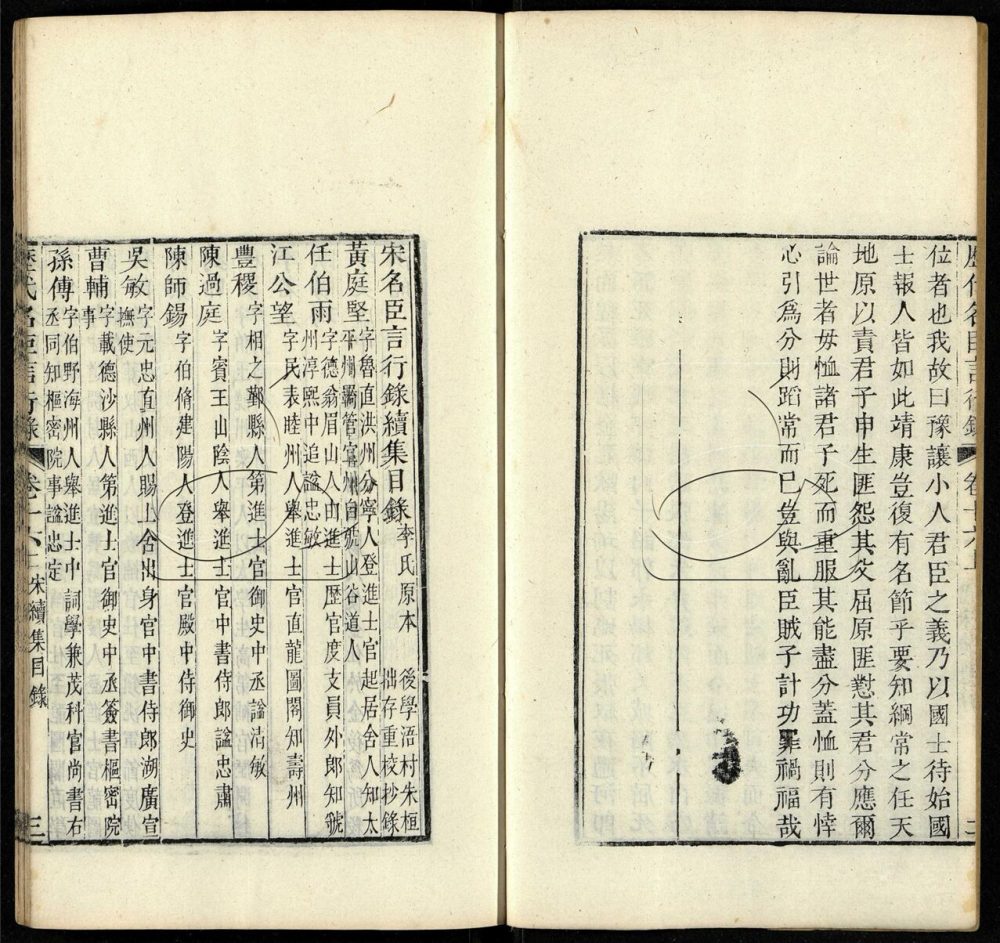 歷代名臣言行錄 卷十六上 二
位者也我故曰豫讓小人君臣之義乃以國士待始國
士報人皆如此靖康豈復有名節乎要知綱常之任天
地原以責君子申生匪怨其父屈原匪懟其君分應爾
論世者毋恤諸君子死而重服其能盡分蓋恤則有悻
心引爲分則蹈常而已豈與亂臣賊子計功罪禍福哉
宋名臣言行錄續集目錄 李氏原本 後學浯村朱桓拙存重校抄錄
黃庭堅 字魯直洪州分寧人登進士官起居舍人知太
平州羈管宜州自號山谷道人
任伯雨 字德翁眉山人由進士歷官度支員外郎知虢
州淳熙中追諡忠敏
江公望 字民表睦州人舉進士官直龍圖閣知壽州
豐稷 字相之鄞縣人第進士官御史中丞諡清敏
陳過庭 字賓王山陰人舉進士官中書侍郎諡忠肅
陳師錫 字伯脩建陽人登進士官殿中侍御史
吳敏 字元忠直州人賜上舍出身官中書侍郎湖廣宣
撫使
曹輔 字載德沙縣人第進士官御史中丞簽書樞密院
事
孫傅 字伯野海州人舉進士中詞學兼茂科官尚書右
丞同知樞密院事諡忠定
歷代名臣言行錄 卷十六上 宋續集目錄 三